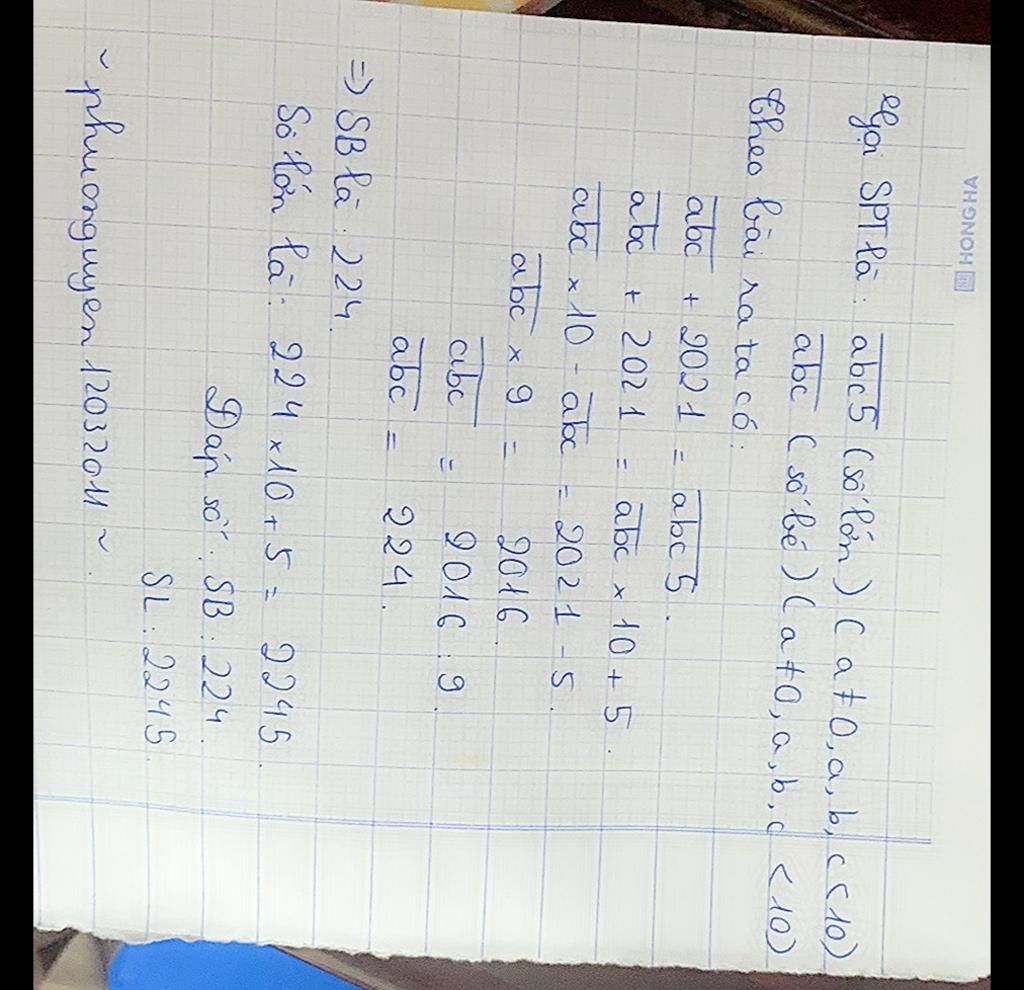 HONG HA
Gọi SPT là: abc5 (số lớn) (a ≠ 0, a, b, c < 10)
abc (số bé) (a ≠ 0, a, b, c < 10)
Theo bài ra ta có:
abc + 2021 = abc5.
abc + 2021 = abc × 10 + 5.
abc × 10 - abc = 2021 - 5.
abc × 9 = 2016.
abc = 2016 : 9.
abc = 224.
=> SB là: 224.
Số lớn là: 224 × 10 + 5 = 2245.
Đáp số: SB: 224.
SL: 2245.
~ phuongnguyen12032011 ~